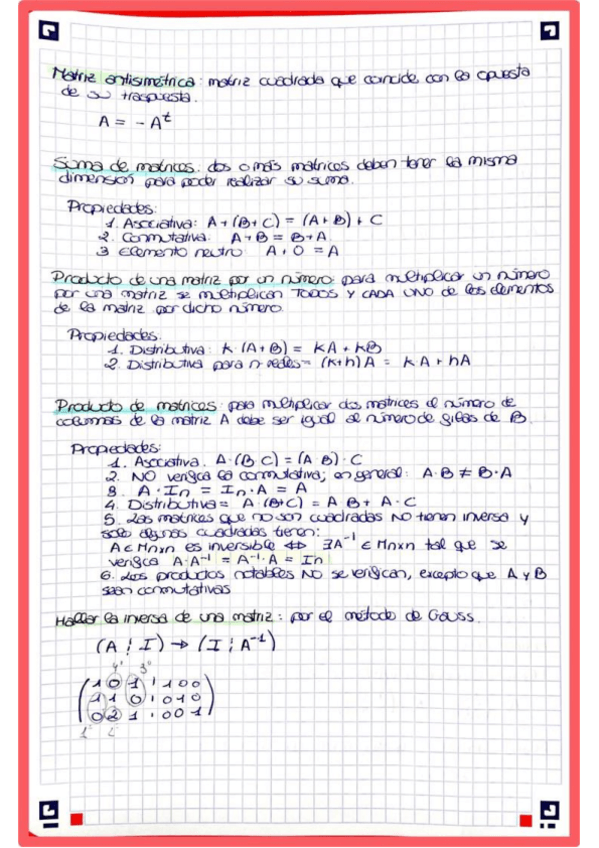 Matriz antisimétrica: matriz cuadrada que coincide con la opuesta
de su traspuesta.
A = - Aᵗ
Suma de matrices: dos o más matrices deben tener la misma
dimensión para poder realizar su suma.
Propiedades:
1. Asociativa: A + (B + C) = (A + B) + C
2. Conmutativa: A + B = B + A
3 Elemento neutro A + 0 = A
Producto de una matriz por un número: para multiplicar un número
por una matriz se multiplican TODOS Y CADA UNO de los elementos
de la matriz por dicho número.
Propiedades:
1. Distributiva: K (A + B) = KA + KB
2. Distributiva para nº reales = (K+h) A = KA + hA
Producto de matrices: para multiplicar dos matrices el número de
columnas de la matriz A debe ser igual al número de filas de B.
Propiedades:
1. Asociativa. A·(B C) = (A B) · C
2. NO verifica la conmutativa; en general: A·B ≠ B·A
3. A · In = In · A = A
4. Distributiva = A (B+C) = A B + A · C
5. Las matrices que no son cuadradas NO tienen inversa y
solo algunas cuadradas tienen:
A ∈ Mnxn es inversible ⇔ ∃A⁻¹ ∈ Mnxn tal que se
verifica A·A⁻¹ = A⁻¹·A = In
6. Los productos notables NO se verifican, excepto que A y B
sean conmutativas
Hallar la inversa de una matriz: por el método de Gauss.
(A ¦ I) → (I ¦ A⁻¹)
4º 3º
1 0 1 ¦ 1 0 0
1 1 0 ¦ 0 1 0
0 2 1 ¦ 0 0 1
1º 2º